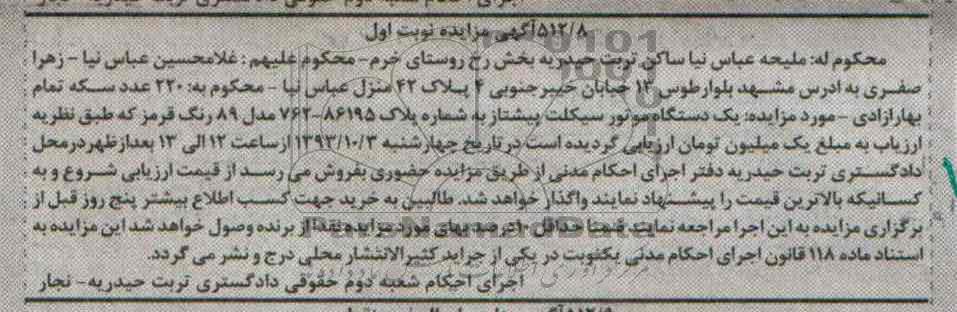 ۵۱۲/۸آگهی مزایده نوبت اول
محکوم له: ملیحه عباس نیا ساکن تربت حیدریه بخش رخ روستای خرم- محکوم علیهم : غلامحسین عباس نیا - زهرا
صفری به ادرس مشهد بلوارطوس ۱۳ خیابان خیبرجنوبی ۴ پلاک ۴۲ منزل عباس نیا - محکوم به: ۲۲۰ عدد سکه تمام
بهارازادی -مورد مزایده: یک دستگاه موتور سیکلت پیشتاز به شماره پلاک ۸۶۱۹۵-۷۶۲ مدل ۸۹ رنگ قرمز که طبق نظریه
ارزیاب به مبلغ یک میلیون تومان ارزیابی گردیده است در تاریخ چهارشنبه ۱۳۹۳/۱۰/۳ از ساعت ۱۲ الی ۱۳ بعدازظهر درمحل
دادگستری تربت حیدریه دفتر اجرای احکام مدنی از طریق مزایده حضوری بفروش می رسد از قیمت ارزیابی شروع و به
کسانیکه بالاترین قیمت را پیشنهاد نمایند واگذار خواهد شد. طالبین به خرید جهت کسب اطلاع بیشتر پنج روز قبل از
برگزاری مزایده به این اجرا مراجعه نمایند ضمنا حداقل ۱۰درصد بهای مورد مزایده نقدا از برنده وصول خواهد شد این مزایده به
استناد ماده ۱۱۸ قانون اجرای احکام مدنی یکنوبت در یکی از جراید کثیرالانتشار محلی درج و نشر می گردد.
اجرای احکام شعبه دوم حقوقی دادگستری تربت حیدریه- نجار